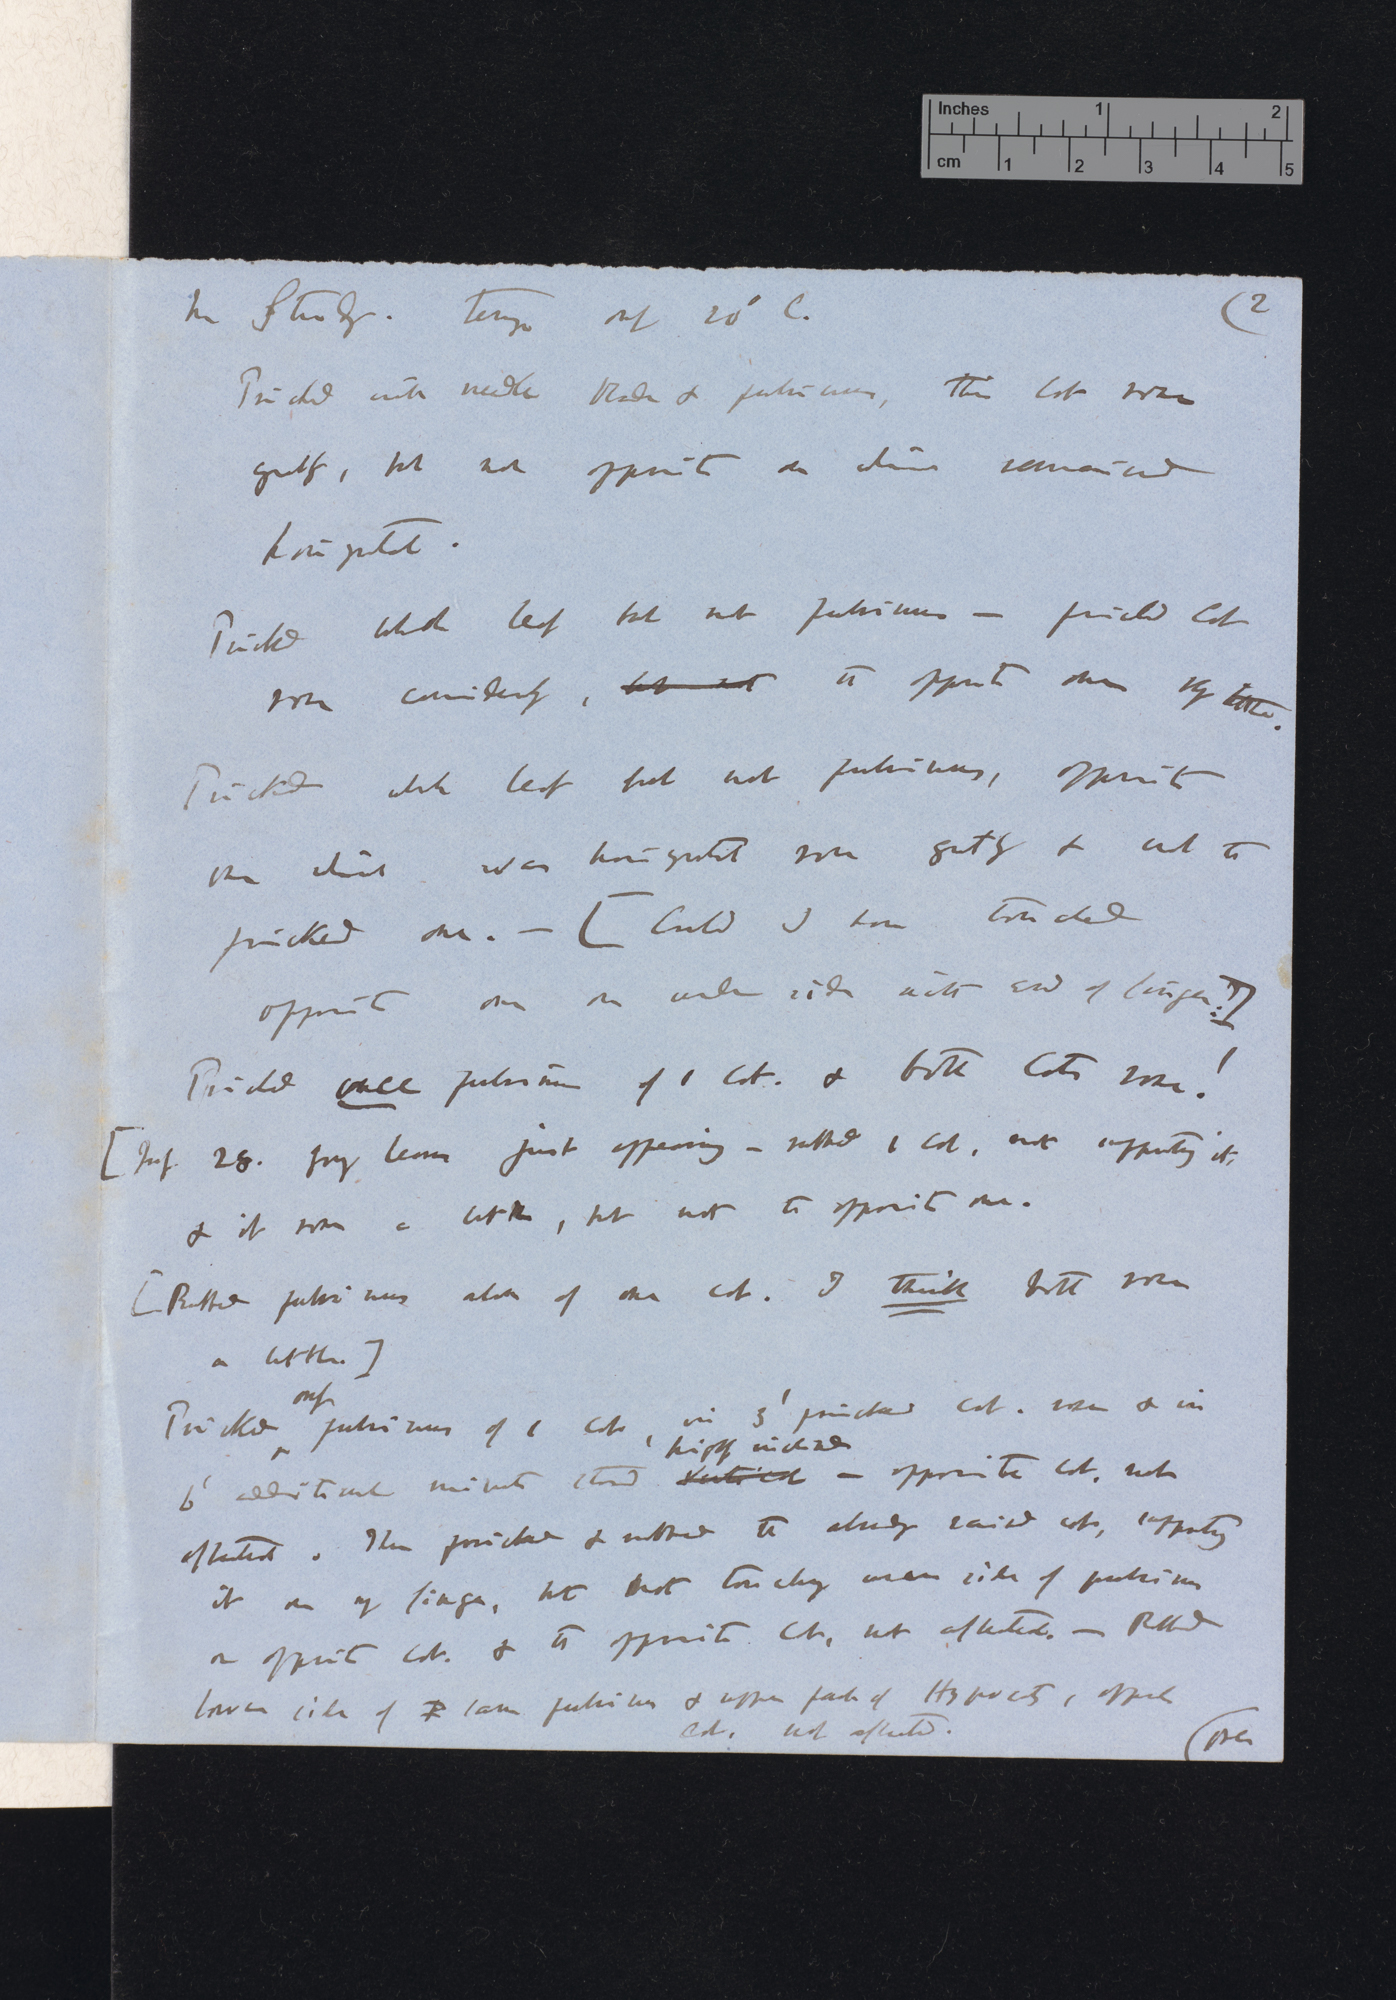 Inches 1 2
cm 1 2 3 4 5
In Study. Temp only 20° C. (2
Pricked with needle blade & pulvinus, this Cot rose
greatly, but not opposite one which remained
horizontal.
Pricked whole leaf but not pulvinus — pricked Cot
rose considerably, but not the opposite one very little.
Pricked whole leaf but not pulvinus, opposite
one which was horizontal rose greatly & not the
pricked one. — [Could I have touched
opposite one on under side with end of finger?]
Pricked once pulvinus of 1 Cot. & both Cots rose!
[July 28. young leaves just appearing — rubbed 1 cot, not supporting it,
& it rose a little, but not the opposite one.
[Rubbed pulvinus alone of one cot. I think both rose
a little.]
only
Pricked pulvinus of 1 Cot, in 3' pricked cot. rose & in
highly inclined
6' additional minutes stood vertical — opposite cot. not
affected. Then pricked & rubbed the already raised cot, supporting
it on my finger, but not touching under side of pulvinus
or opposite cot. & the opposite cot, not affected. — Rubbed
lower side of same pulvinus & upper part of Hypocot, oppos
cot. not affected.
(over